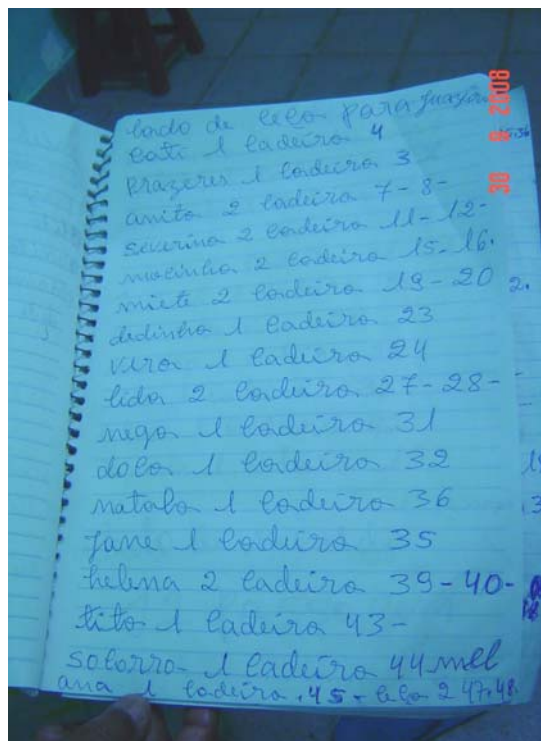 lado de lela para juazeiro
cati 1 cadeira 4
prazeres 1 cadeira 3
anita 2 cadeira 7-8-
severina 2 cadeira 11-12-
mocinha 2 cadeira 15-16.
miete 2 cadeira 19-20
dedinha 1 cadeira 23
vera 1 cadeira 24
lida 2 cadeira 27-28-
nega 1 cadeira 31
1 cadeira 32
1 cadeira 36
jane 1 cadeira 35
helena 2 cadeira 39-40-
tito 1 cadeira 43-
socorro- 1 cadeira 44 mell
ana 1 cadeira .45- lela 2 47.48.
30 8 2008